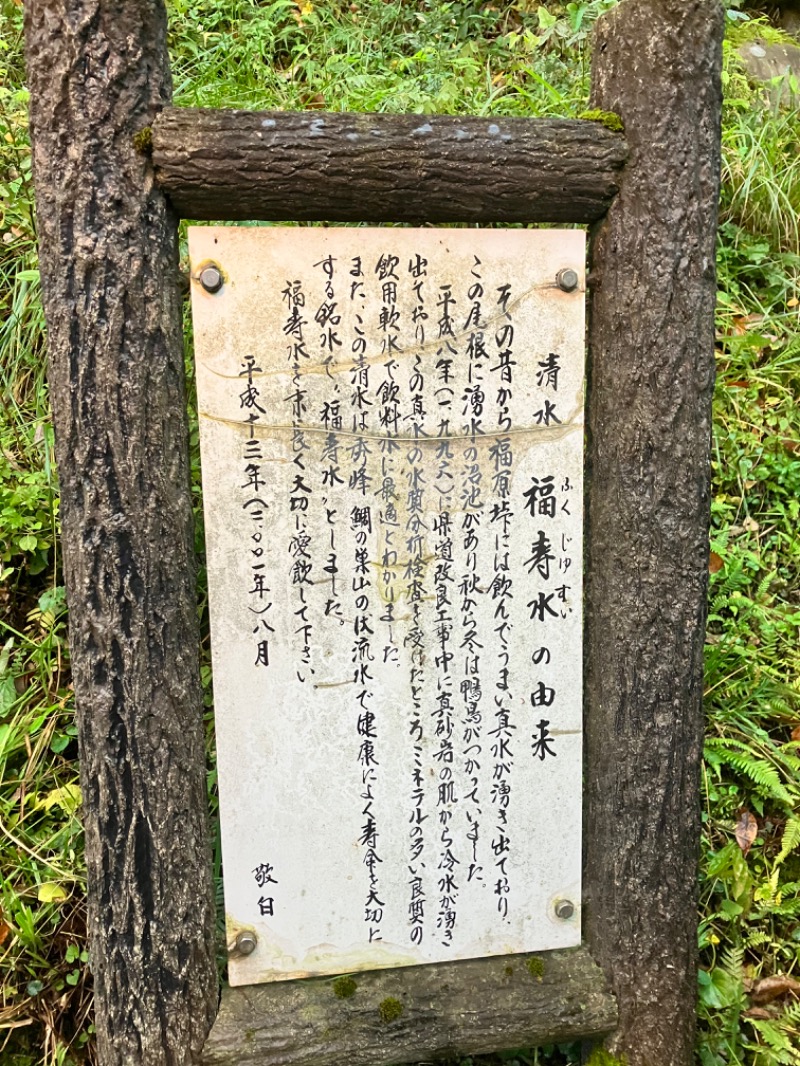 清水 福寿水の由来
ふくじゅすい
その昔から福原峠には飲んでうまい真水が湧き出ており、
この尾根に湧水の沼池があり秋から冬は鴨鳥がつかっていました。
平成八年(一九九六)に県道改良工事中に真砂岩の肌から冷水が湧き
出ておりこの真水の水質分析検査を受けたところミネラルの多い良質の
飲用軟水で飲料水に最適とわかりました。
また、この清水は秀峰 鯛の巣山の伏流水で健康によく寿命を大切に
する銘水で〝福寿水〟としました。
福寿水を末長く大切に愛飲して下さい
平成十三年(二〇〇一年)八月
敬白